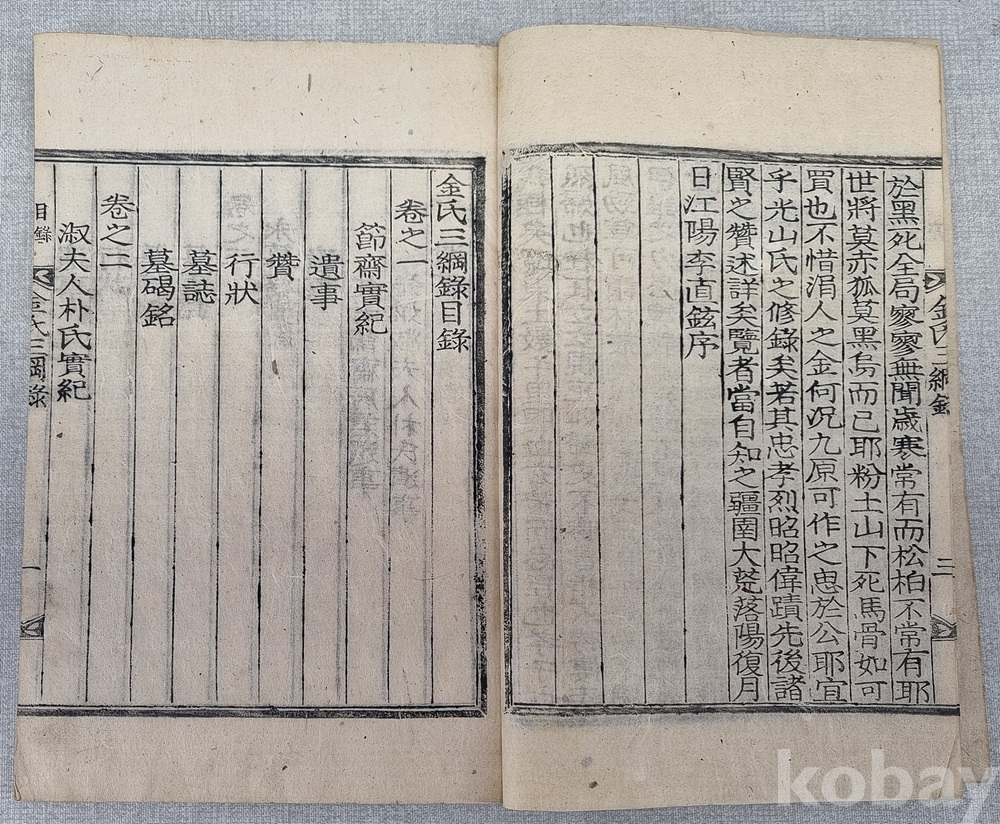 金氏三綱錄
三
於黑死全局寥寥無聞歲寒常有而松柏不常有耶
世將莫赤狐莫黑烏而已耶粉土山下死馬骨如可
買也不惜涓人之金何况九原可作之思於公耶宜
乎光山氏之修錄矣若其忠孝烈昭昭偉蹟先後諸
賢之贊述詳矣覽者當自知之疆圉大荒落陽復月
日江陽李直鉉序
金氏三綱錄目錄
卷之一
節齋實紀
遺事
贊
行狀
墓誌
墓碣銘
卷之二
淑夫人朴氏實紀
目錄
金氏三綱錄
一
kobay